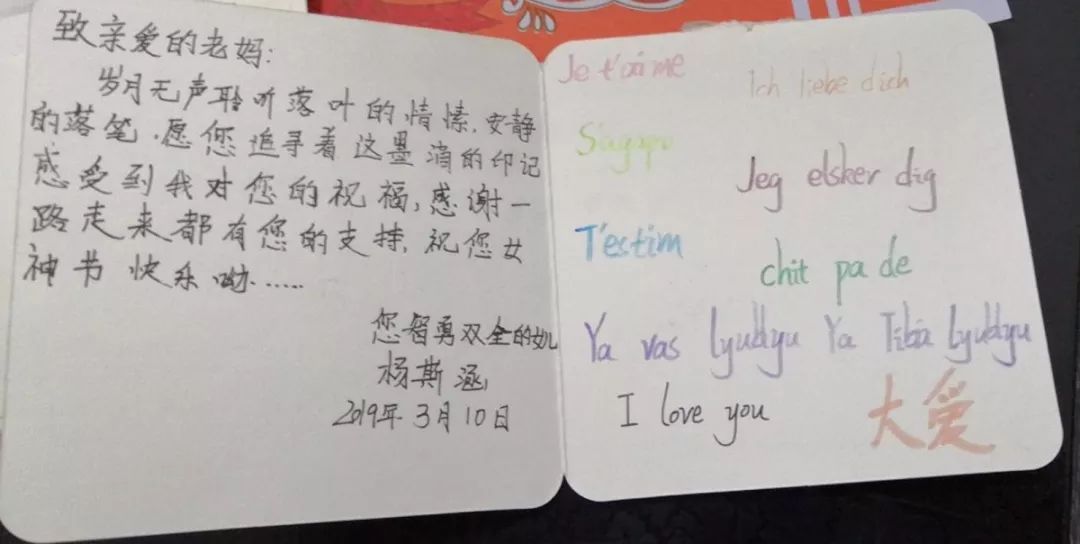 致亲爱的老妈:
岁月无声聆听落叶的情愫,安静
的落笔,愿您追寻着这墨消的印记
感受到我对您的祝福,感谢一
路走来都有您的支持,祝您女
神节快乐呦......
您智勇双全的女儿
杨斯涵
2019年3月10日
Je t'aime
Ich liebe dich
S'agapo
Jeg elsker dig
T'estim
chit pa de
Ya vas lyublyu Ya Tibia lyublyu
I love you
大爱